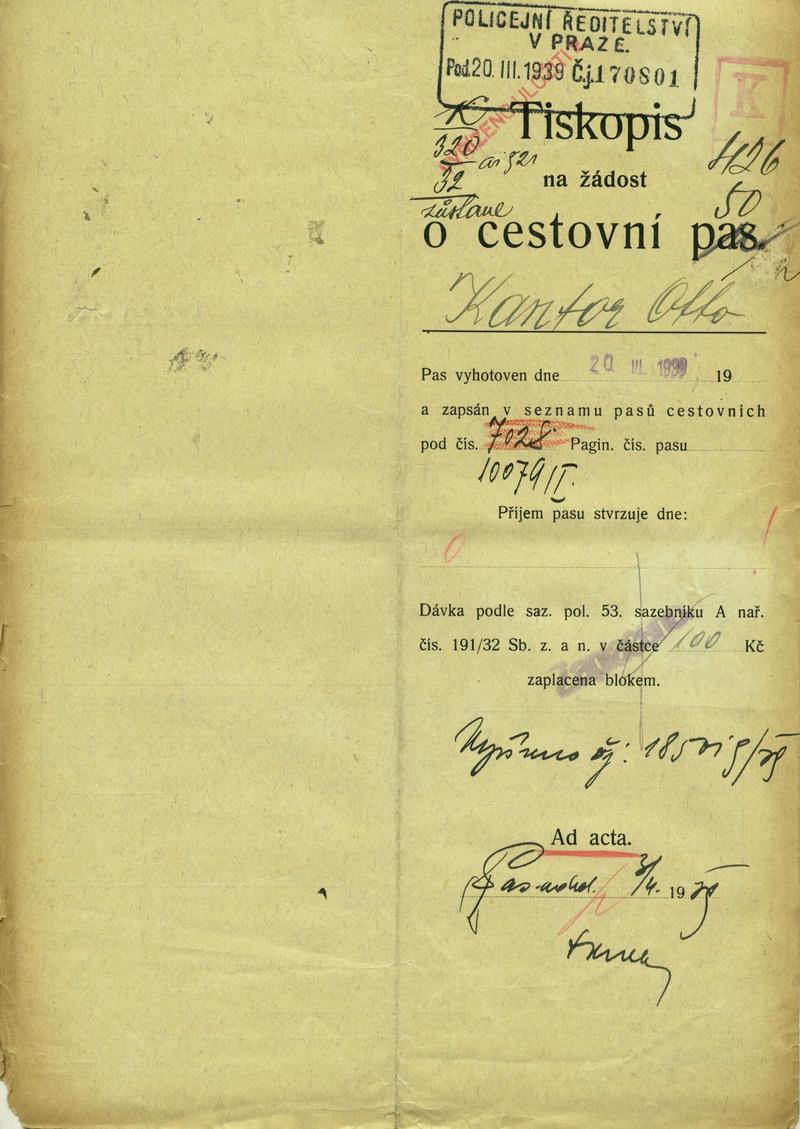 POLICEJNÍ ŘEDITELSTVÍ
V PRAZE.
Pod. 20. III. 1939 Č.j. 170801
K
K
Tiskopis
320
32
426
na žádost
50
zůstane
o cestovní pas.
Kantor Otto
Pas vyhotoven dne 20 III 1939 19
a zapsán v seznamu pasů cestovních
pod čís. 7028 Pagin. čís. pasu
10079/II.
Příjem pasu stvrzuje dne:
Dávka podle saz. pol. 53. sazebníku A nař.
čís. 191/32 Sb. z. a n. v částce 100 Kč
zaplacena blokem.
Ad acta.
19 39